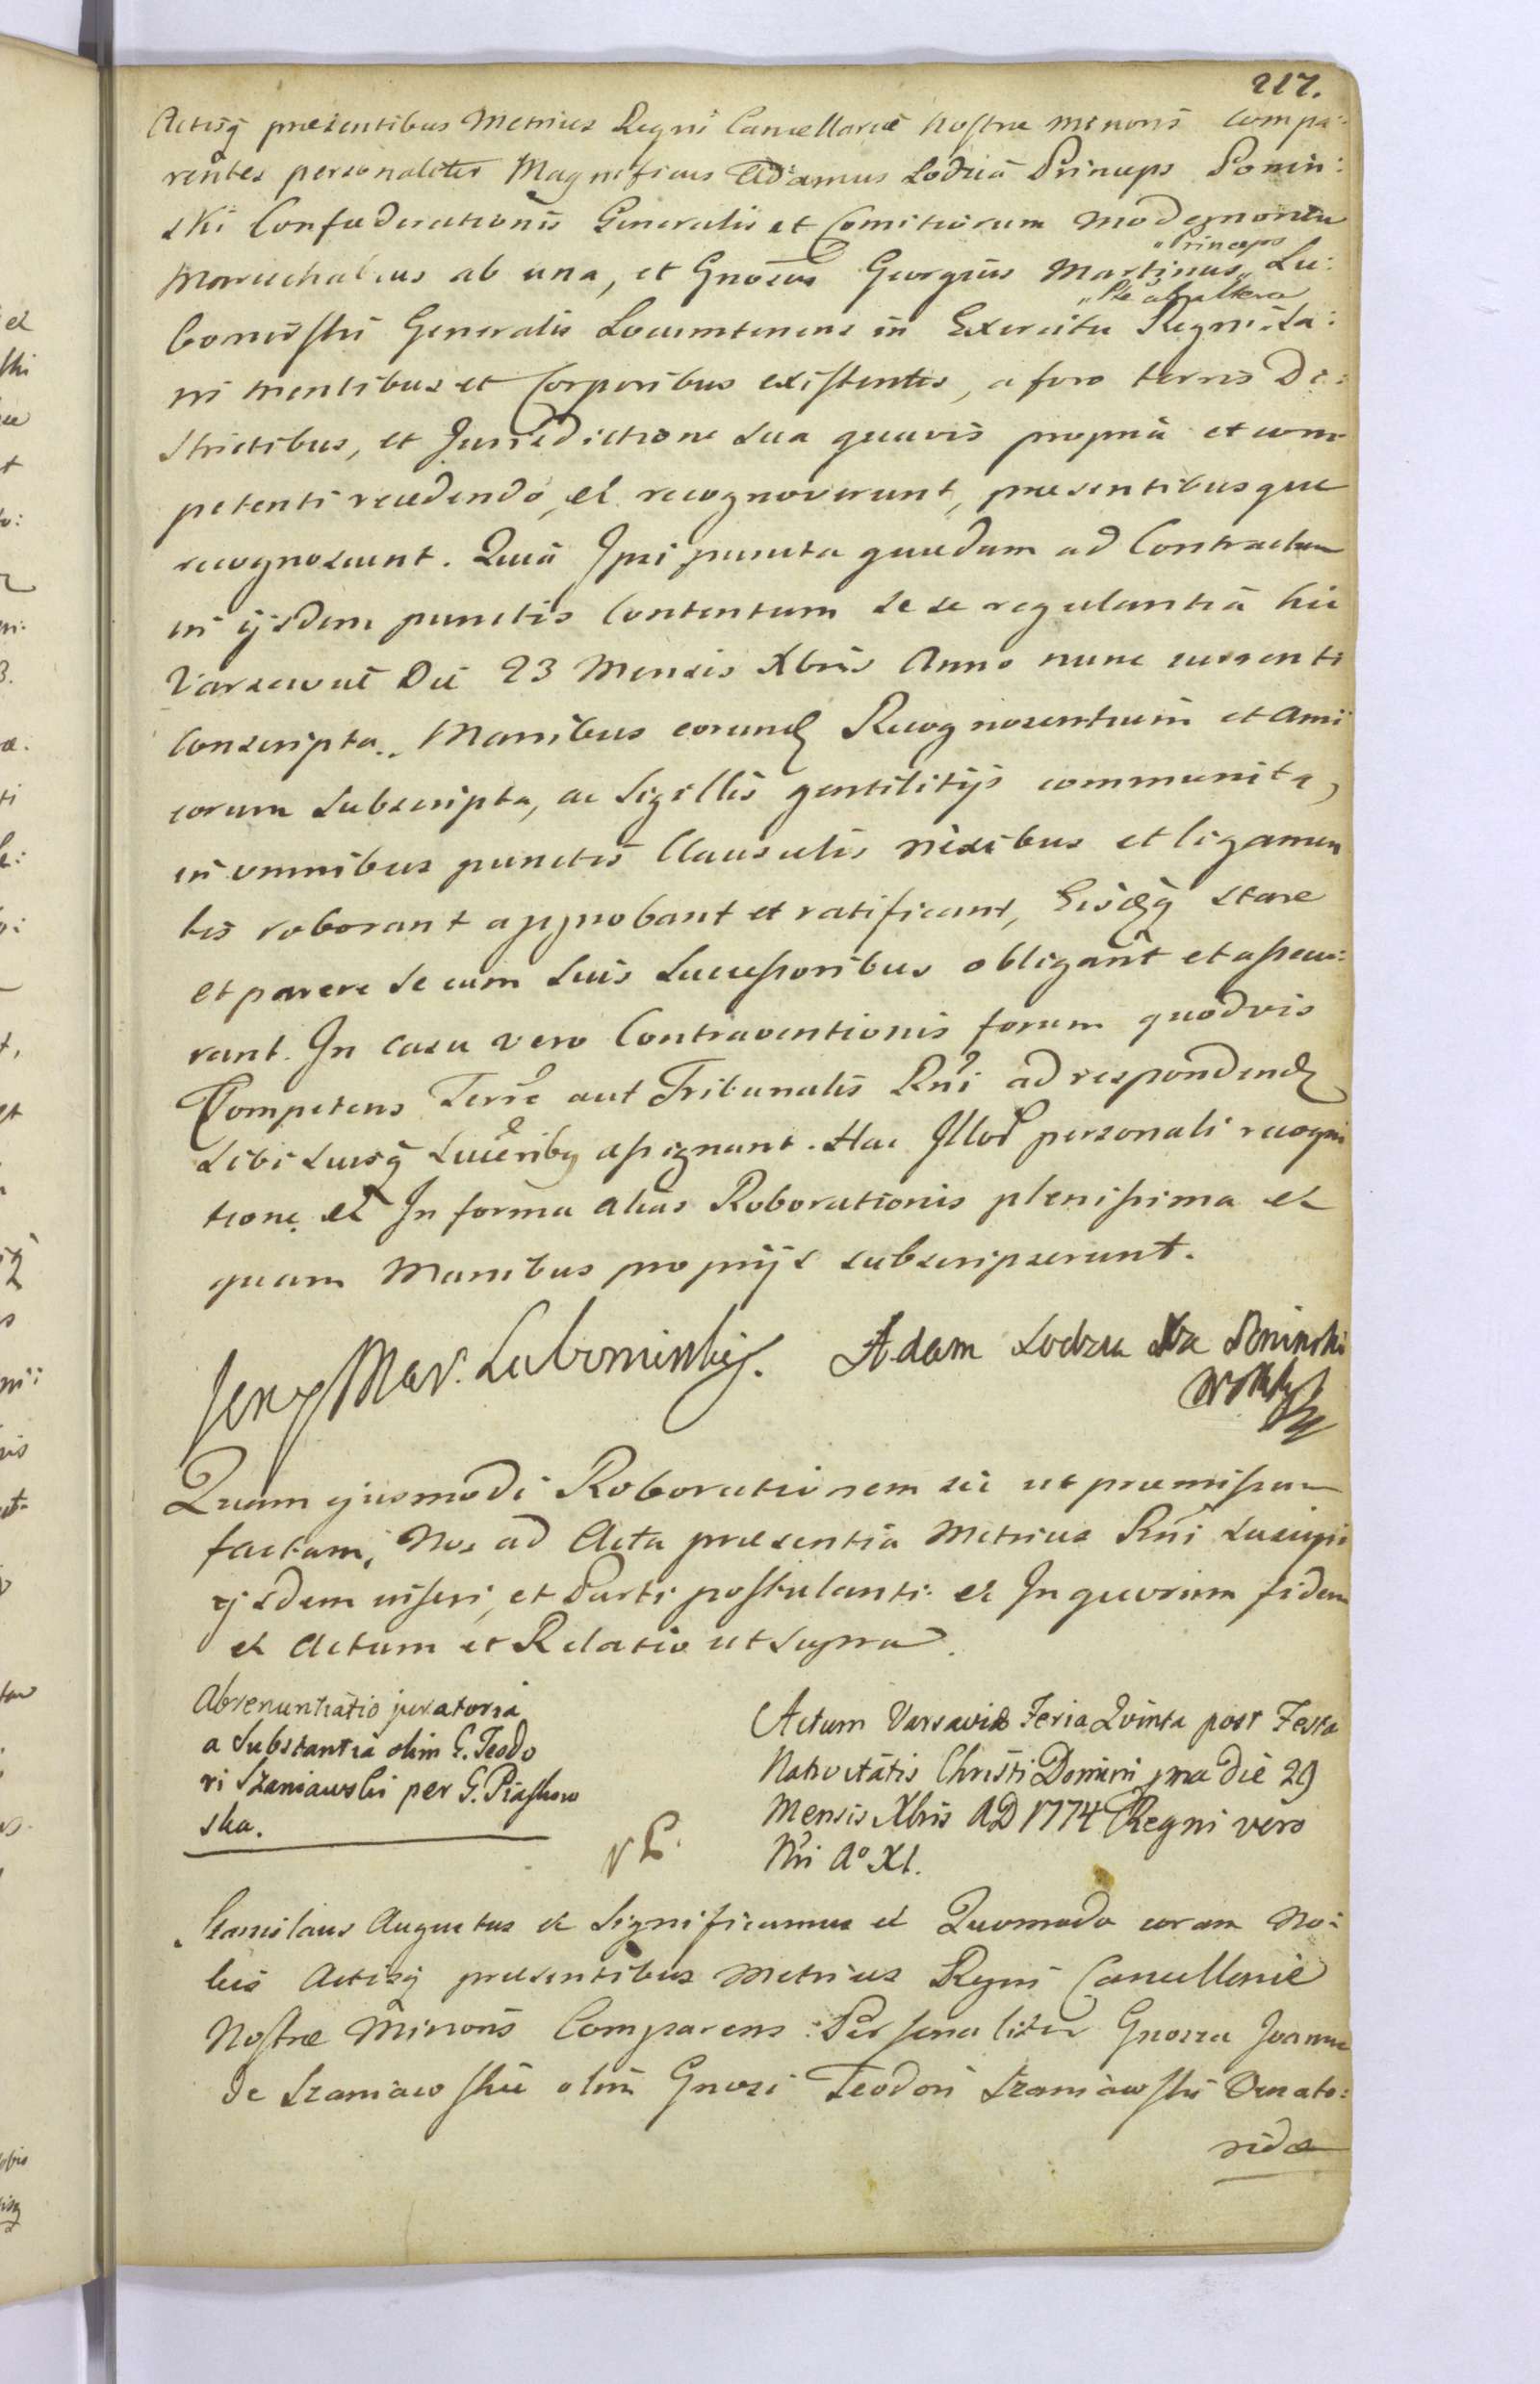 217.
Actisq̃ præsentibus Metrices Regni Cancellariæ Nostræ Minoris Compa:
rentes personaliter Magnificus Adamus Lodzia Princeps Ponin:
ski Confæderationis Generalis et Comitiorum Modernorum
Mareschalcus ab una, et Gnosus Georgius Martinus „Princeps„ Lu:
bomirski Generalis Locumtenens in Exercitu Regni „Pte ab altera„ Sa:
ni mentibus et Corporibus existentes, a foro terris Di:
strictibus, et Jurisdictione sua quavis propria et com
petenti recedendo, et recognoverunt, præsentibusque
recognoscunt. Quia Ipsi puncta quædam ad Contractum
in ijsdem punctis Contentum sese regulantia hic
Varsaviæ Die 23 Mensis Xbris Anno nunc currenti
Conscripta. Manibus eorund Recognoscentium et Ami
corum subscripta, ac Sigillis gentilitijs communita,
in omnibus punctis Clausulis nexibus et ligamen
tis roborant approbant et ratificant, Eisdeq̃ stare
et parere se cum suis Successoribus obligant et assecu:
rant. In casu vero Contraventionis forum quodvis
Competens Terre aut Tribunalis Rni ad respondend
sibi suisq̃ Succribq assignant. Hac Illor personali recogni
tione et In forma alias Roborationis plenissima et
quam Manibus proprijs subscripserunt.
Jerzy Mar. Lubomirski. Adam Lodzia Xze Poninski
Quam ejusmodi Roborationem sic ut præmissum
factam, Nos ad Acta præsentia Metrices Rni suscipi
ijsdem inseri, et Parti postulanti et In quorum fidem
et Actum et Relatio ut supra.
Abrenuntiatio juratoria
a Substantia olim G. Teodo
ri Szaniawski per G. Piaskow
ska.
Actum Varsaviæ Feria Quinta post Festa
Nativitatis Christi Domini pma die 29
Mensis Xbris AD 1774 Regni vero
Nri Aº XI.
Stanislaus Augustus et Significamus et Quomodo coram No:
bis Actisq præsentibus Metrices Regni Cancellariæ
Nostræ Minoris Comparens Personaliter Gnosa Joanna
de Szaniawskie olim Gnosi Teodori Szaniawski Venato:
ridæ